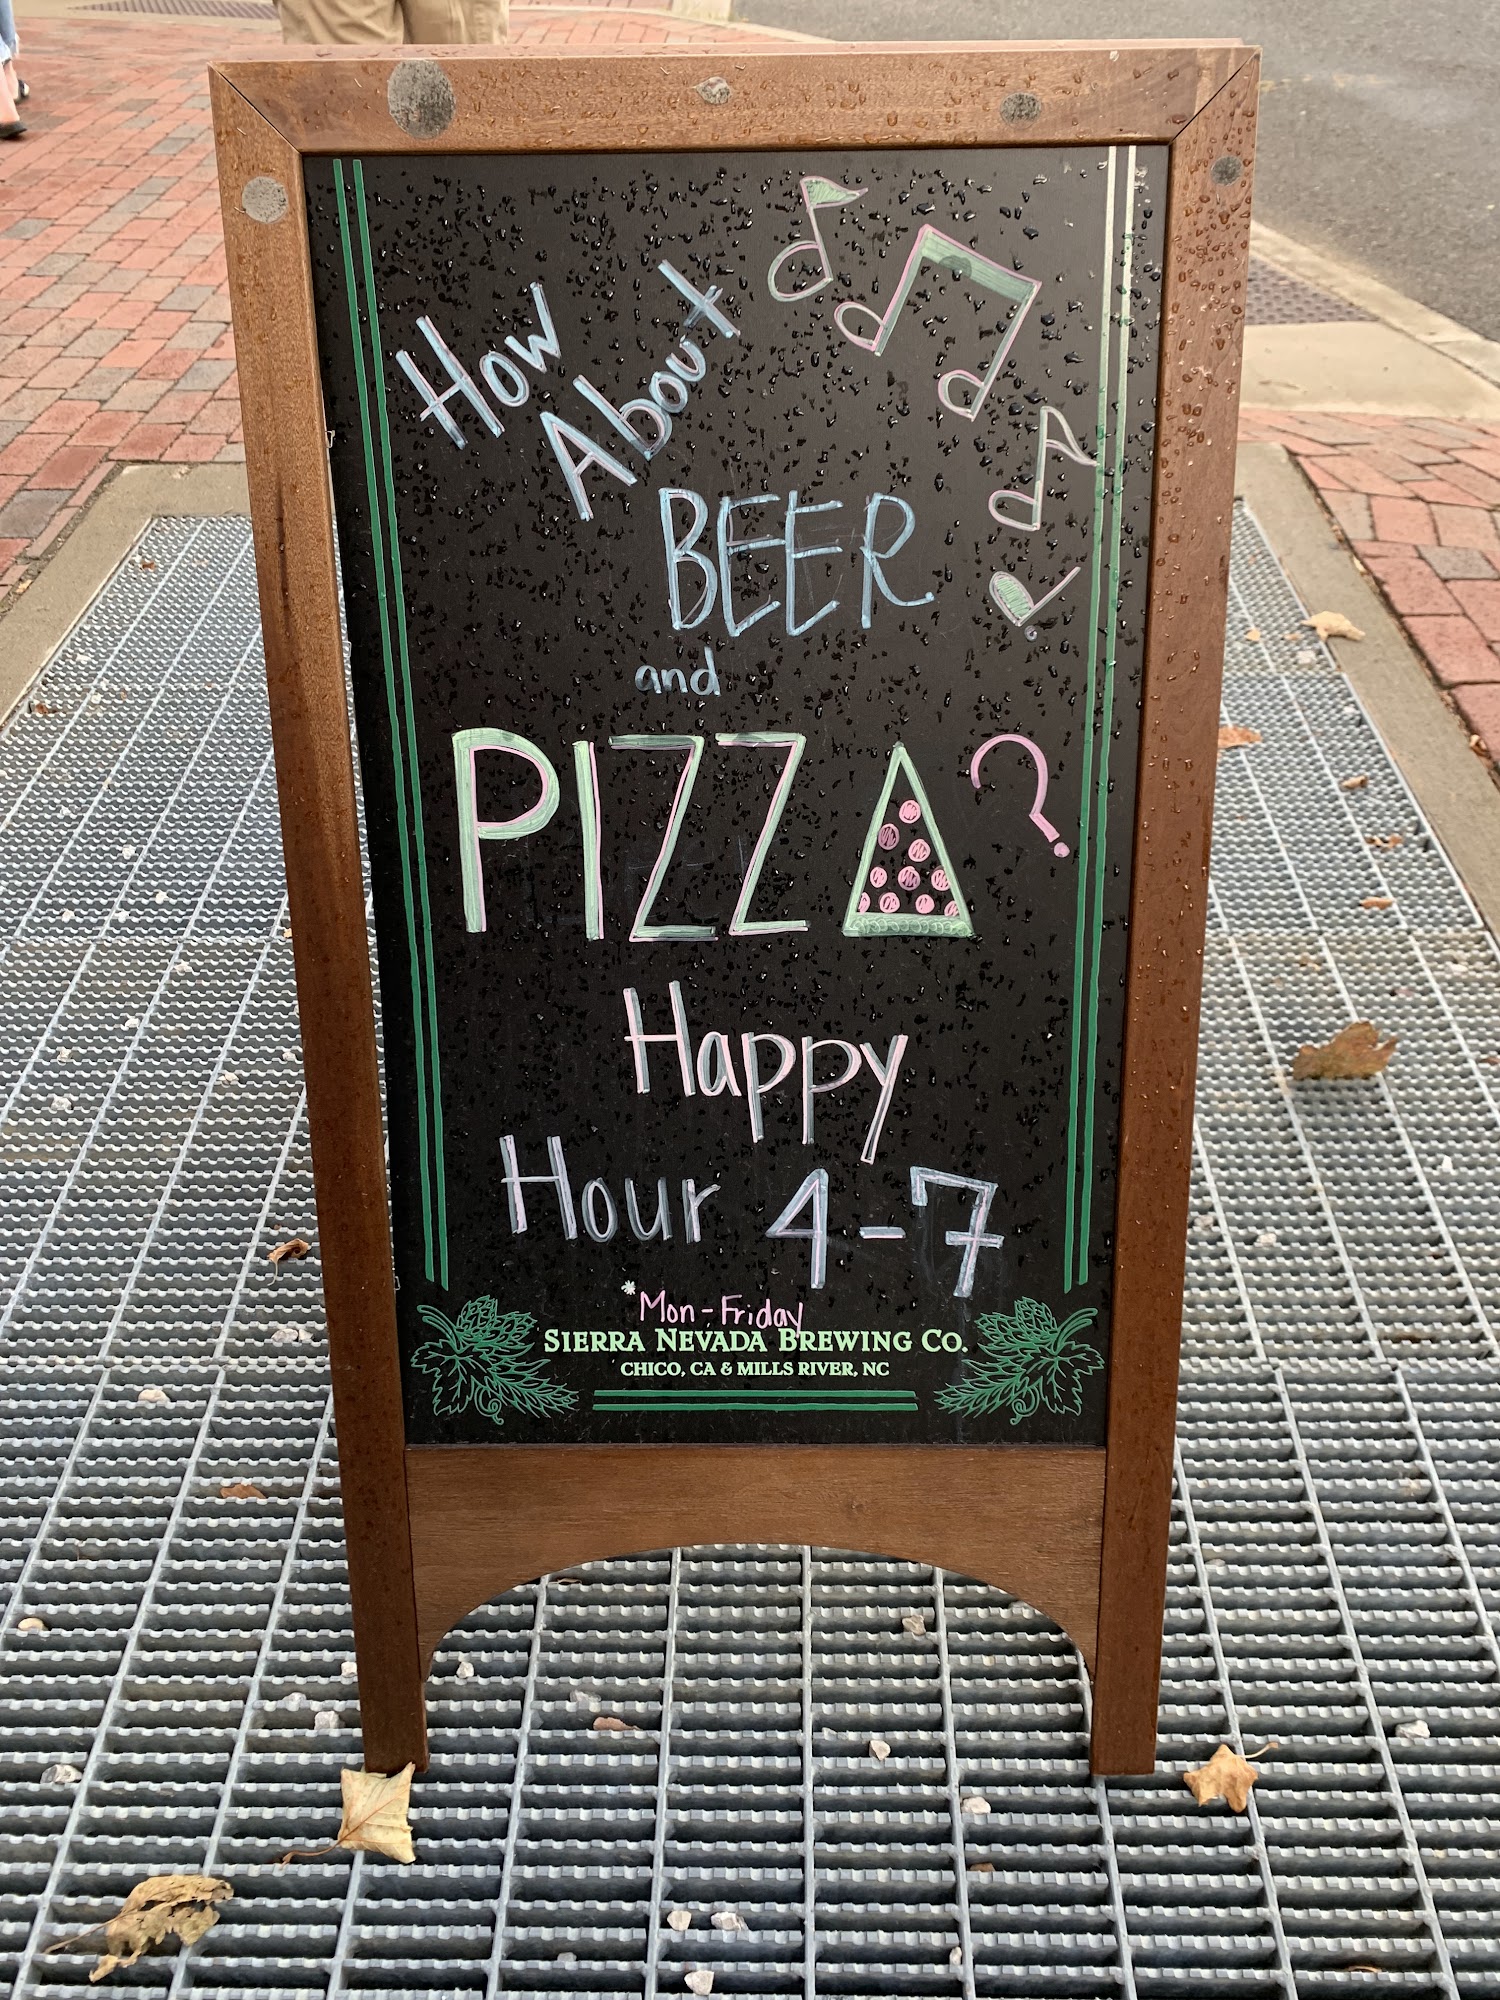 How
About
BEER
and
PIZZA?
Happy
Hour 4-7
*Mon-Friday
SIERRA NEVADA BREWING CO.
CHICO, CA & MILLS RIVER, NC